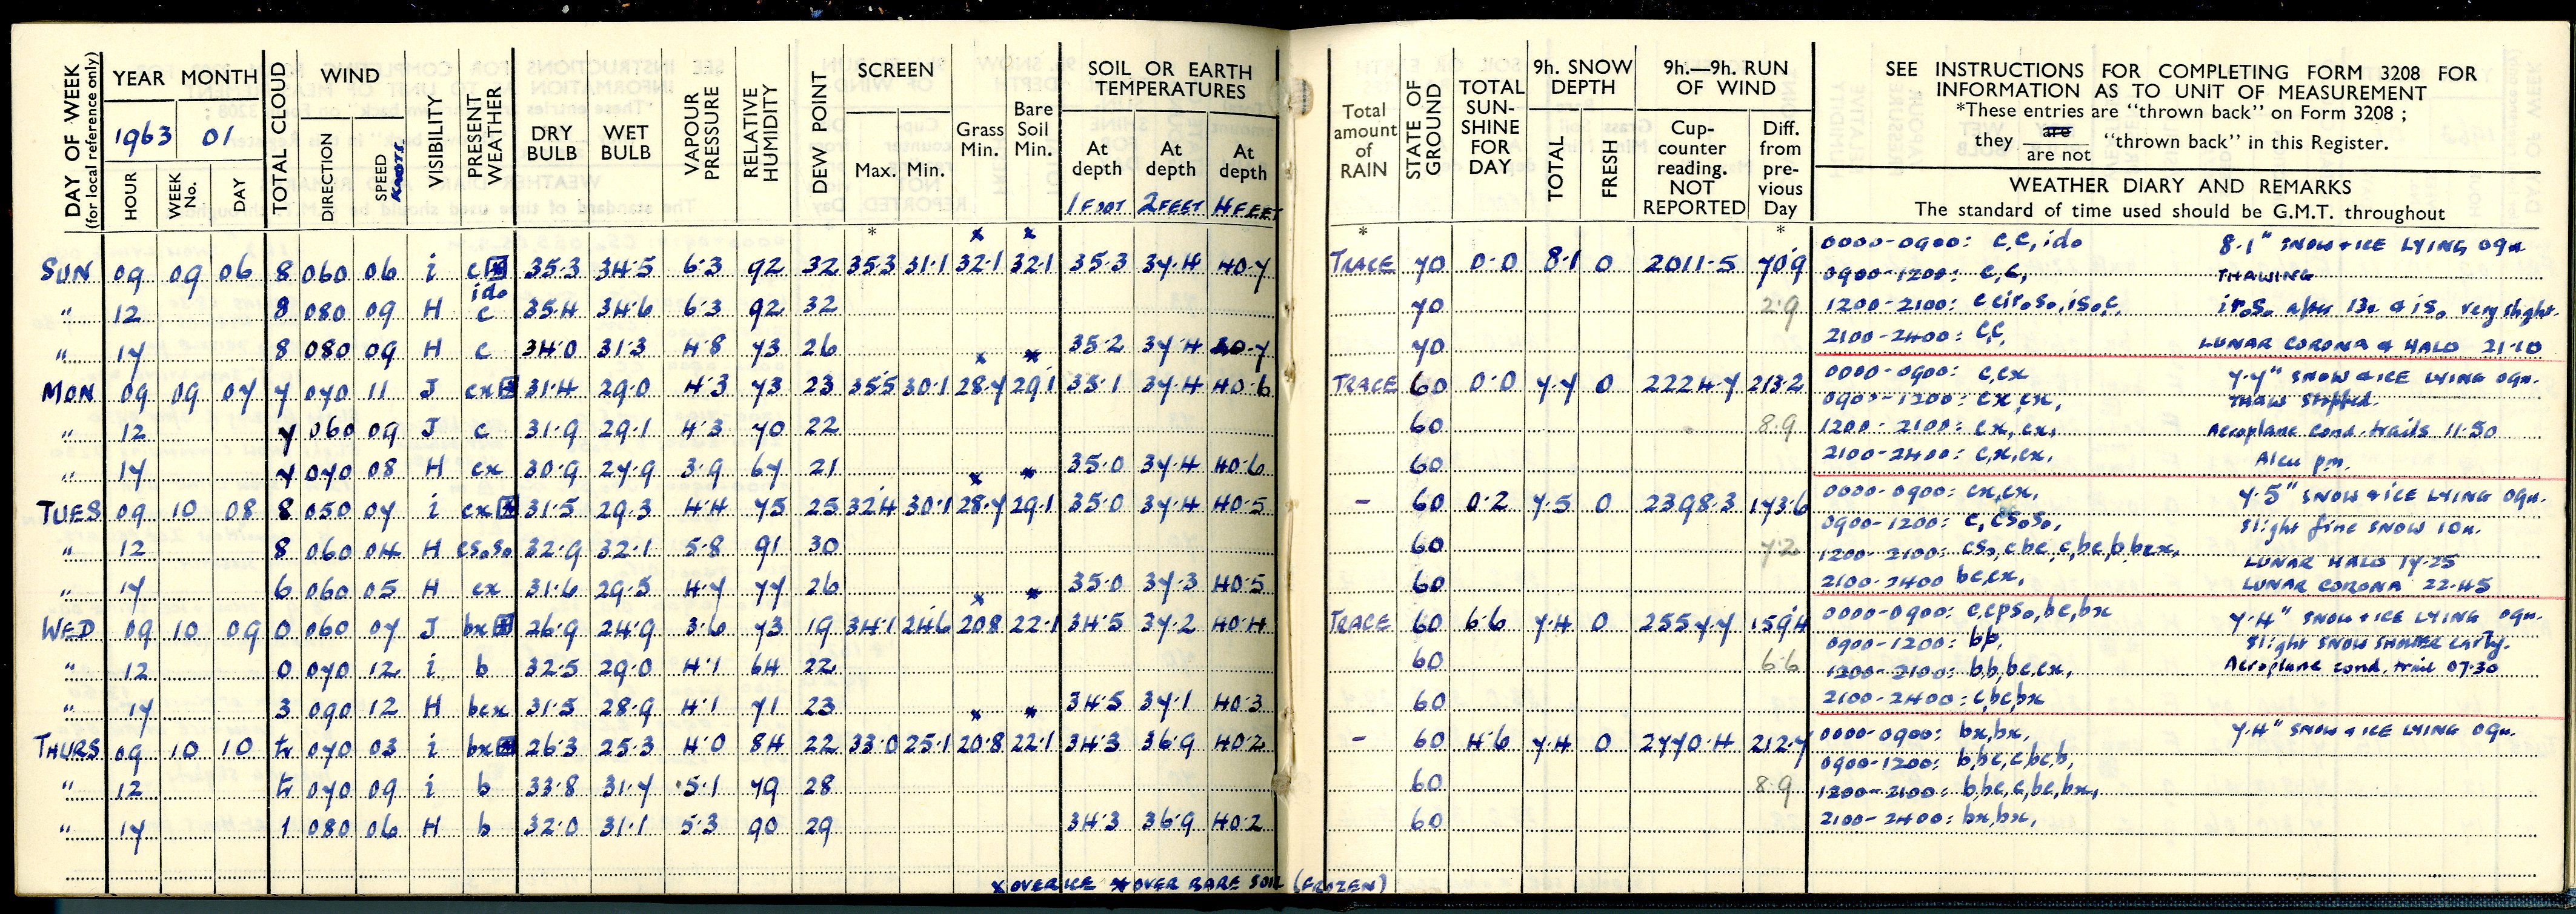 DAY OF WEEK (for local reference only)
YEAR MONTH
1963 01
HOUR WEEK No. DAY
TOTAL CLOUD
WIND
DIRECTION SPEED KNOTS
VISIBILITY
PRESENT WEATHER
DRY BULB
WET BULB
VAPOUR PRESSURE
RELATIVE HUMIDITY
DEW POINT
SCREEN
Max. Min.
Grass Min.
Bare Soil Min.
SOIL OR EARTH TEMPERATURES
At depth At depth At depth
1 FOOT 2 FEET 4 FEET
Total amount of RAIN
STATE OF GROUND
TOTAL SUN-SHINE FOR DAY
9h. SNOW DEPTH
TOTAL FRESH
9h.—9h. RUN OF WIND
Cup-counter reading. NOT REPORTED
Diff. from pre-vious Day
SEE INSTRUCTIONS FOR COMPLETING FORM 3208 FOR
INFORMATION AS TO UNIT OF MEASUREMENT
*These entries are "thrown back" on Form 3208 ;
they are / are not "thrown back" in this Register.
WEATHER DIARY AND REMARKS
The standard of time used should be G.M.T. throughout
* x x * *
SUN 09 09 06 8 060 06 i c 35.3 34.5 6.3 92 32 35.3 31.1 32.1 32.1 35.3 37.4 40.7 TRACE 70 0.0 8.1 0 2011.5 70.9
ido
" 12 8 080 09 H c 35.4 34.6 6.3 92 32 70 2.9
" 17 8 080 09 H c 34.0 31.3 4.8 73 26 35.2 37.4 40.7 70
0000-0900: c,c,ido 8.1" SNOW & ICE LYING 09h.
0900-1200: c,c, THAWING
1200-2100: c cir₀s₀,is₀c, ir₀s₀ after 13h & is₀ very slight.
2100-2400: c,c, LUNAR CORONA & HALO 21.10
MON 09 09 07 7 070 11 J cx 31.4 29.0 4.3 73 23 35.5 30.1 28.7 29.1 35.1 37.4 40.6 TRACE 60 0.0 7.7 0 2224.7 213.2
" 12 7 060 09 J c 31.9 29.1 4.3 70 22 60 8.9
" 17 7 070 08 H cx 30.9 27.9 3.9 67 21 35.0 37.4 40.6 60
0000-0900: c,cx 7.7" SNOW & ICE LYING 09h.
0900-1200: cx,cx, Thaw stopped.
1200-2100: cx,cx, Aeroplane cond. trails 11.50
2100-2400: c,x,cx, Alcu pm.
TUES 09 10 08 8 050 07 i cx 31.5 29.3 4.4 75 25 32.4 30.1 28.7 29.1 35.0 37.4 40.5 - 60 0.2 7.5 0 2398.3 173.6
" 12 8 060 04 H cs₀s₀ 32.9 32.1 5.8 91 30 60 7.2
" 17 6 060 05 H cx 31.6 29.5 4.7 77 26 35.0 37.3 40.5 60
0000-0900: cx,cx, 7.5" SNOW & ICE LYING 09h.
0900-1200: c,cs₀s₀, Slight fine snow 10h.
1200-2100: cs₀,cbc,c,bc,b,bcx, LUNAR HALO 17.25
2100-2400 bc,cx, LUNAR CORONA 22.45
WED 09 10 09 0 060 07 J bx 26.9 24.9 3.6 73 19 34.1 24.6 20.8 22.1 34.5 37.2 40.4 TRACE 60 6.6 7.4 0 2557.7 159.4
" 12 0 070 12 i b 32.5 29.0 4.1 64 22 60 6.6
" 17 3 090 12 H bcx 31.5 28.9 4.1 71 23 34.5 37.1 40.3 60
0000-0900: c,cps₀,bc,bx 7.4" SNOW & ICE LYING 09h.
0900-1200: b,b, Slight SNOW SHOWER early.
1200-2100: b,b,bc,cx, Aeroplane cond. trail 07.30
2100-2400: c,bc,bx
THURS 09 10 10 tr 070 03 i bx 26.3 25.3 4.0 84 22 33.0 25.1 20.8 22.1 34.3 36.9 40.2 - 60 4.6 7.4 0 2770.4 212.7
" 12 tr 070 09 i b 33.8 31.7 5.1 79 28 60 8.9
" 17 1 080 06 H b 32.0 31.1 5.3 90 29 34.3 36.9 40.2 60
0000-0900: bx,bx, 7.4" SNOW & ICE LYING 09h.
0900-1200: b,bc,c,bc,b,
1200-2100: b,bc,c,bc,bx,
2100-2400: bx,bx,
x OVER ICE * OVER BARE SOIL (FROZEN)